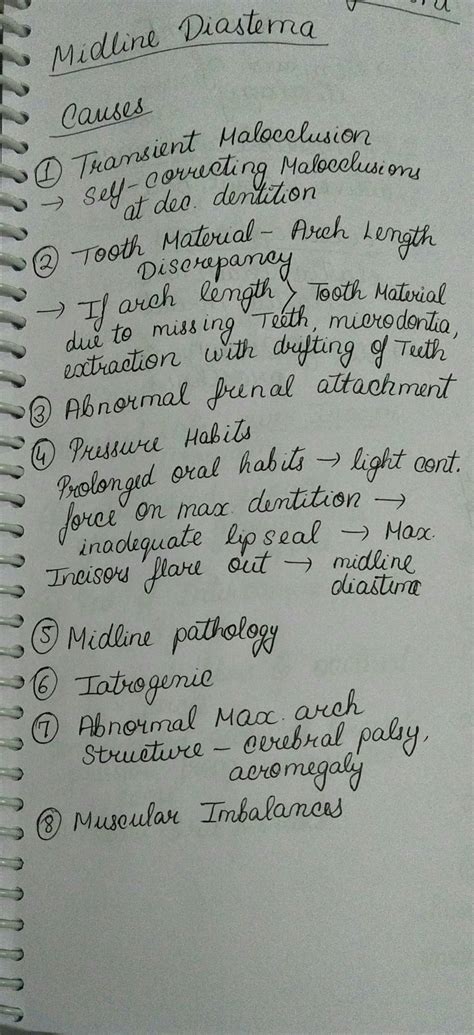 Midline Diastema
Causes
① Transient Malocclusion
→ Self-correcting Malocclusions
at dec. dentition
② Tooth Material - Arch Length
Discrepancy
→ If arch length > Tooth Material
due to missing Teeth, microdontia,
extraction with drifting of Teeth
③ Abnormal frenal attachment
④ Pressure Habits
Prolonged oral habits → light cont.
force on max. dentition →
inadequate lip seal → Max.
Incisors flare out → midline
diastema
⑤ Midline pathology
⑥ Iatrogenic
⑦ Abnormal Max. arch
Structure - cerebral palsy,
acromegaly
⑧ Muscular Imbalances